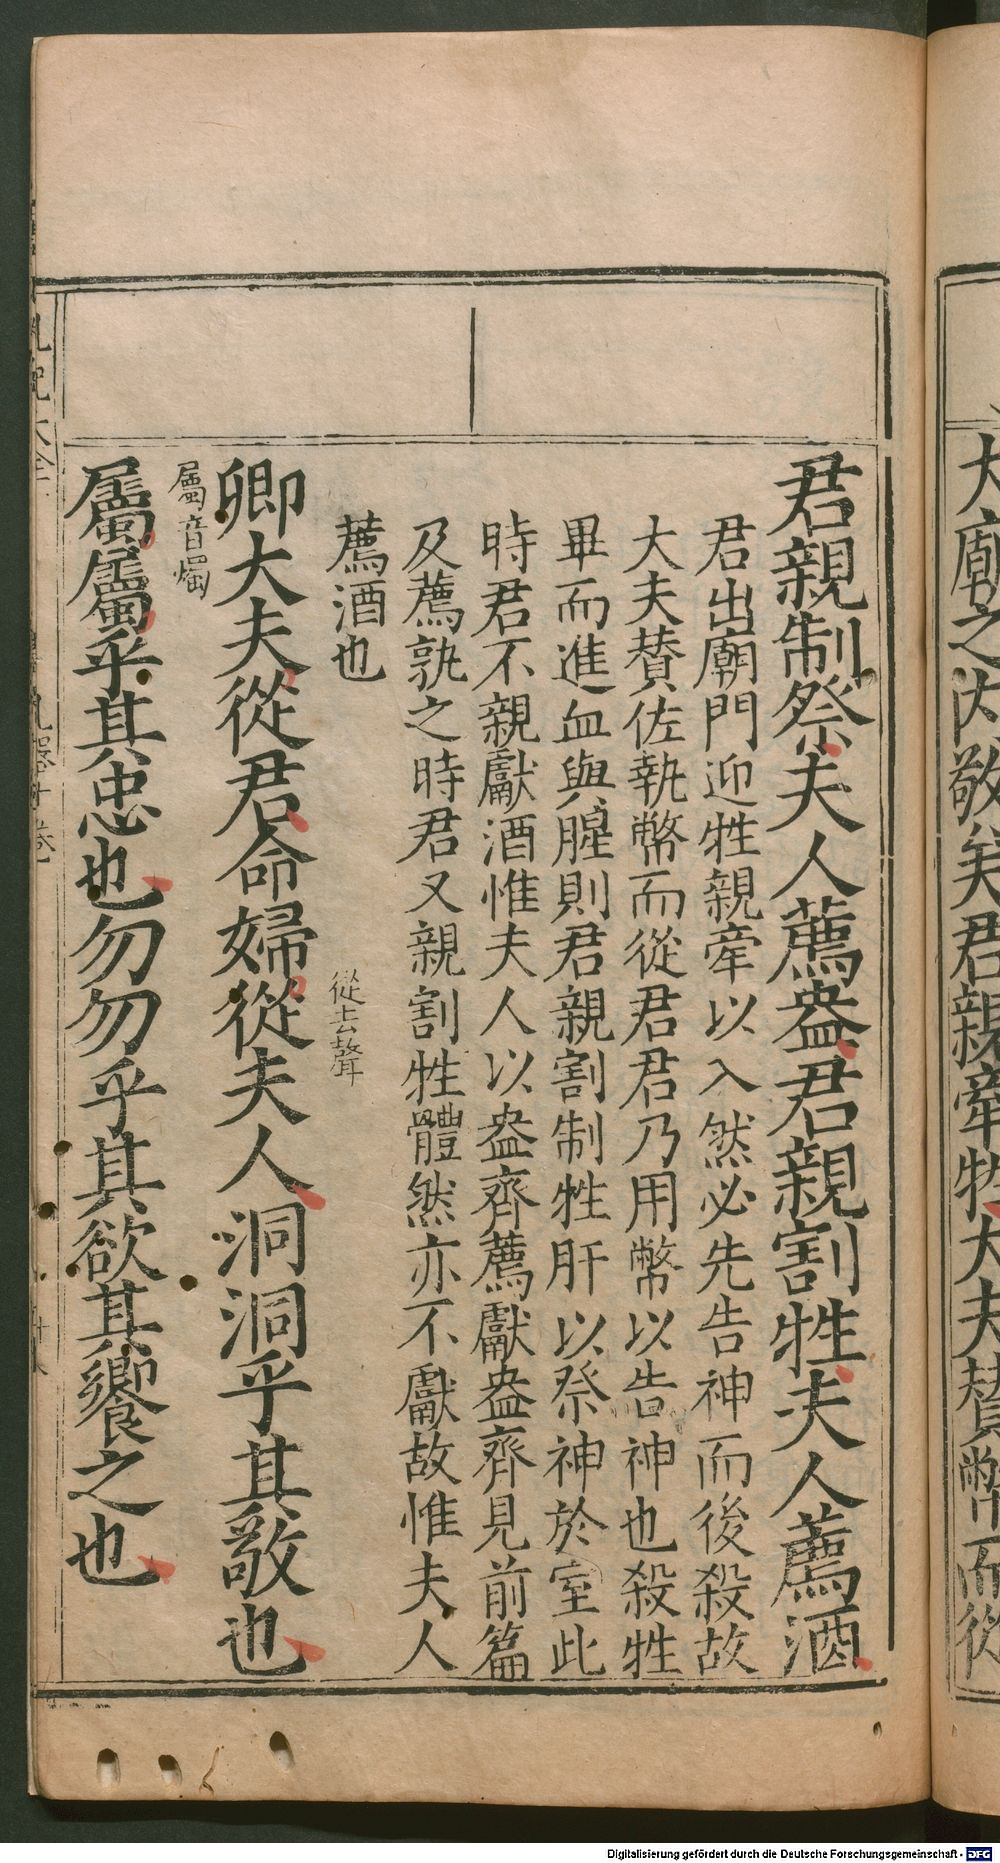 大廟之内敬矣君親牽牲大夫贊幣而從
君親制祭夫人薦盎君親割牲夫人薦酒
君出廟門迎牲親牽以入然必先告神而後殺故
大夫贊佐執幣而從君君乃用幣以告神也殺牲
畢而進血與腥則君親割制牲肝以祭神於室此
時君不親獻酒惟夫人以盎齊薦獻盎齊見前篇
及薦孰之時君又親割牲體然亦不獻故惟夫人
薦酒也
從去聲
卿大夫從君命婦從夫人洞洞乎其敬也
屬音燭
屬屬乎其忠也勿勿乎其欲其饗之也
Digitalisierung gefördert durch die Deutsche Forschungsgemeinschaft - DFG